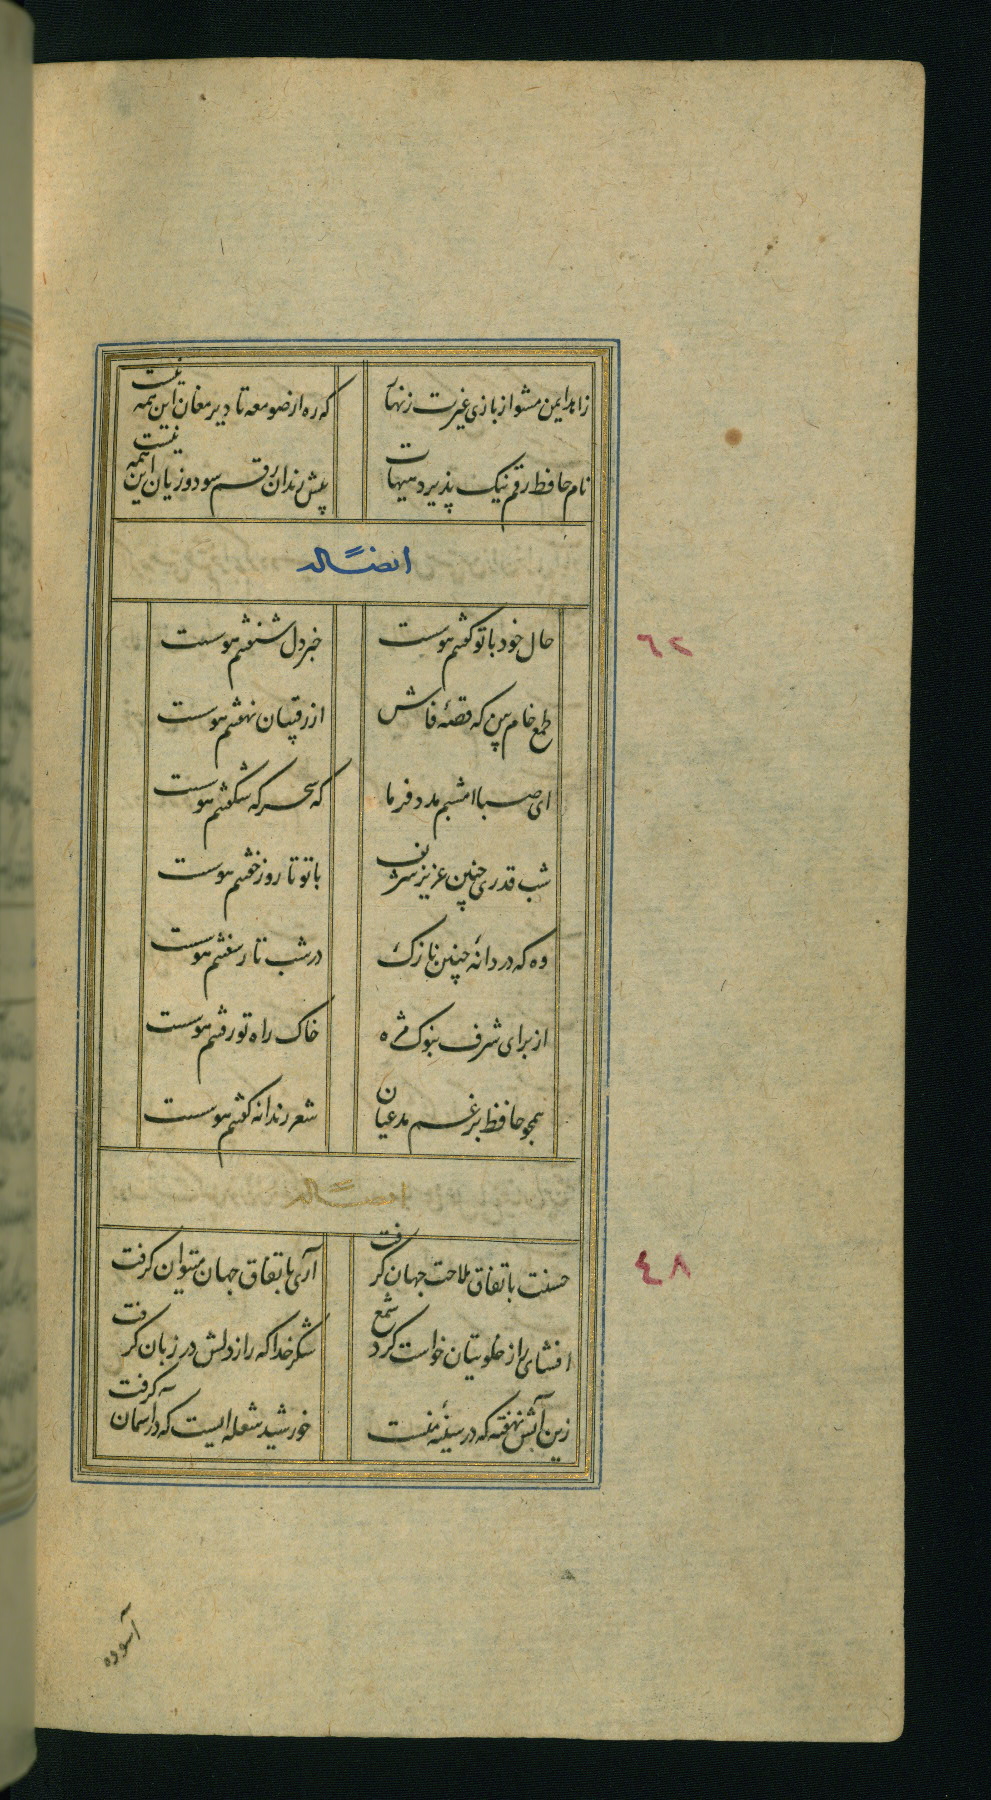 زاهد ایمن مشو از بازی غیرت زنهار که ره از صومعه تا دیر مغان این همه نیست
نام حافظ رقم نیک پذیرد هیهات پیش رندان رقم سود و زیان این همه نیست
ایضاً له
حال خود با تو گفتنم هوست خبر دل شنفتنم هوست
٦٢
طمع خام بین که قصهٔ فاش از رقیبان نهفتنم هوست
ای صبا امشبم مدد فرما که سحرگه شکفتنم هوست
شب قدری چنین عزیز شریف با تو تا روز خفتنم هوست
وه که دردانهٔ چنین نازک در شب تار سفتنم هوست
از برای شرف بنوک مژه خاک راه تو رفتنم هوست
همچو حافظ برغم مدعیان شعر رندانه گفتنم هوست
ایضاً له
حسنت باتفاق ملاحت جهان گرفت آری باتفاق جهان میتوان گرفت
٤٨
افشای راز خلوتیان خواست کرد شمع شکر خدا که راز دلش در زبان گرفت
زین آتش نهفته که در سینهٔ منست خورشید شعله ایست که در آسمان گرفت
آسوده